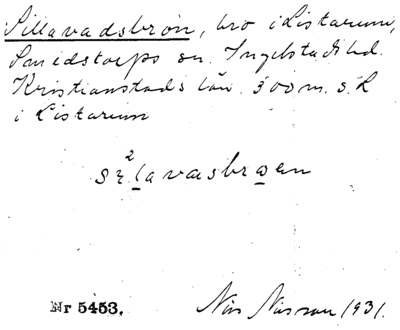 Sillavadsbron, bro i Listarum,
Smedstorps sn. Ingelstads hd.
Kristianstads län. 300 m. s. L
i Listarum
Nr 5453.
Nils Nilsson 1931.